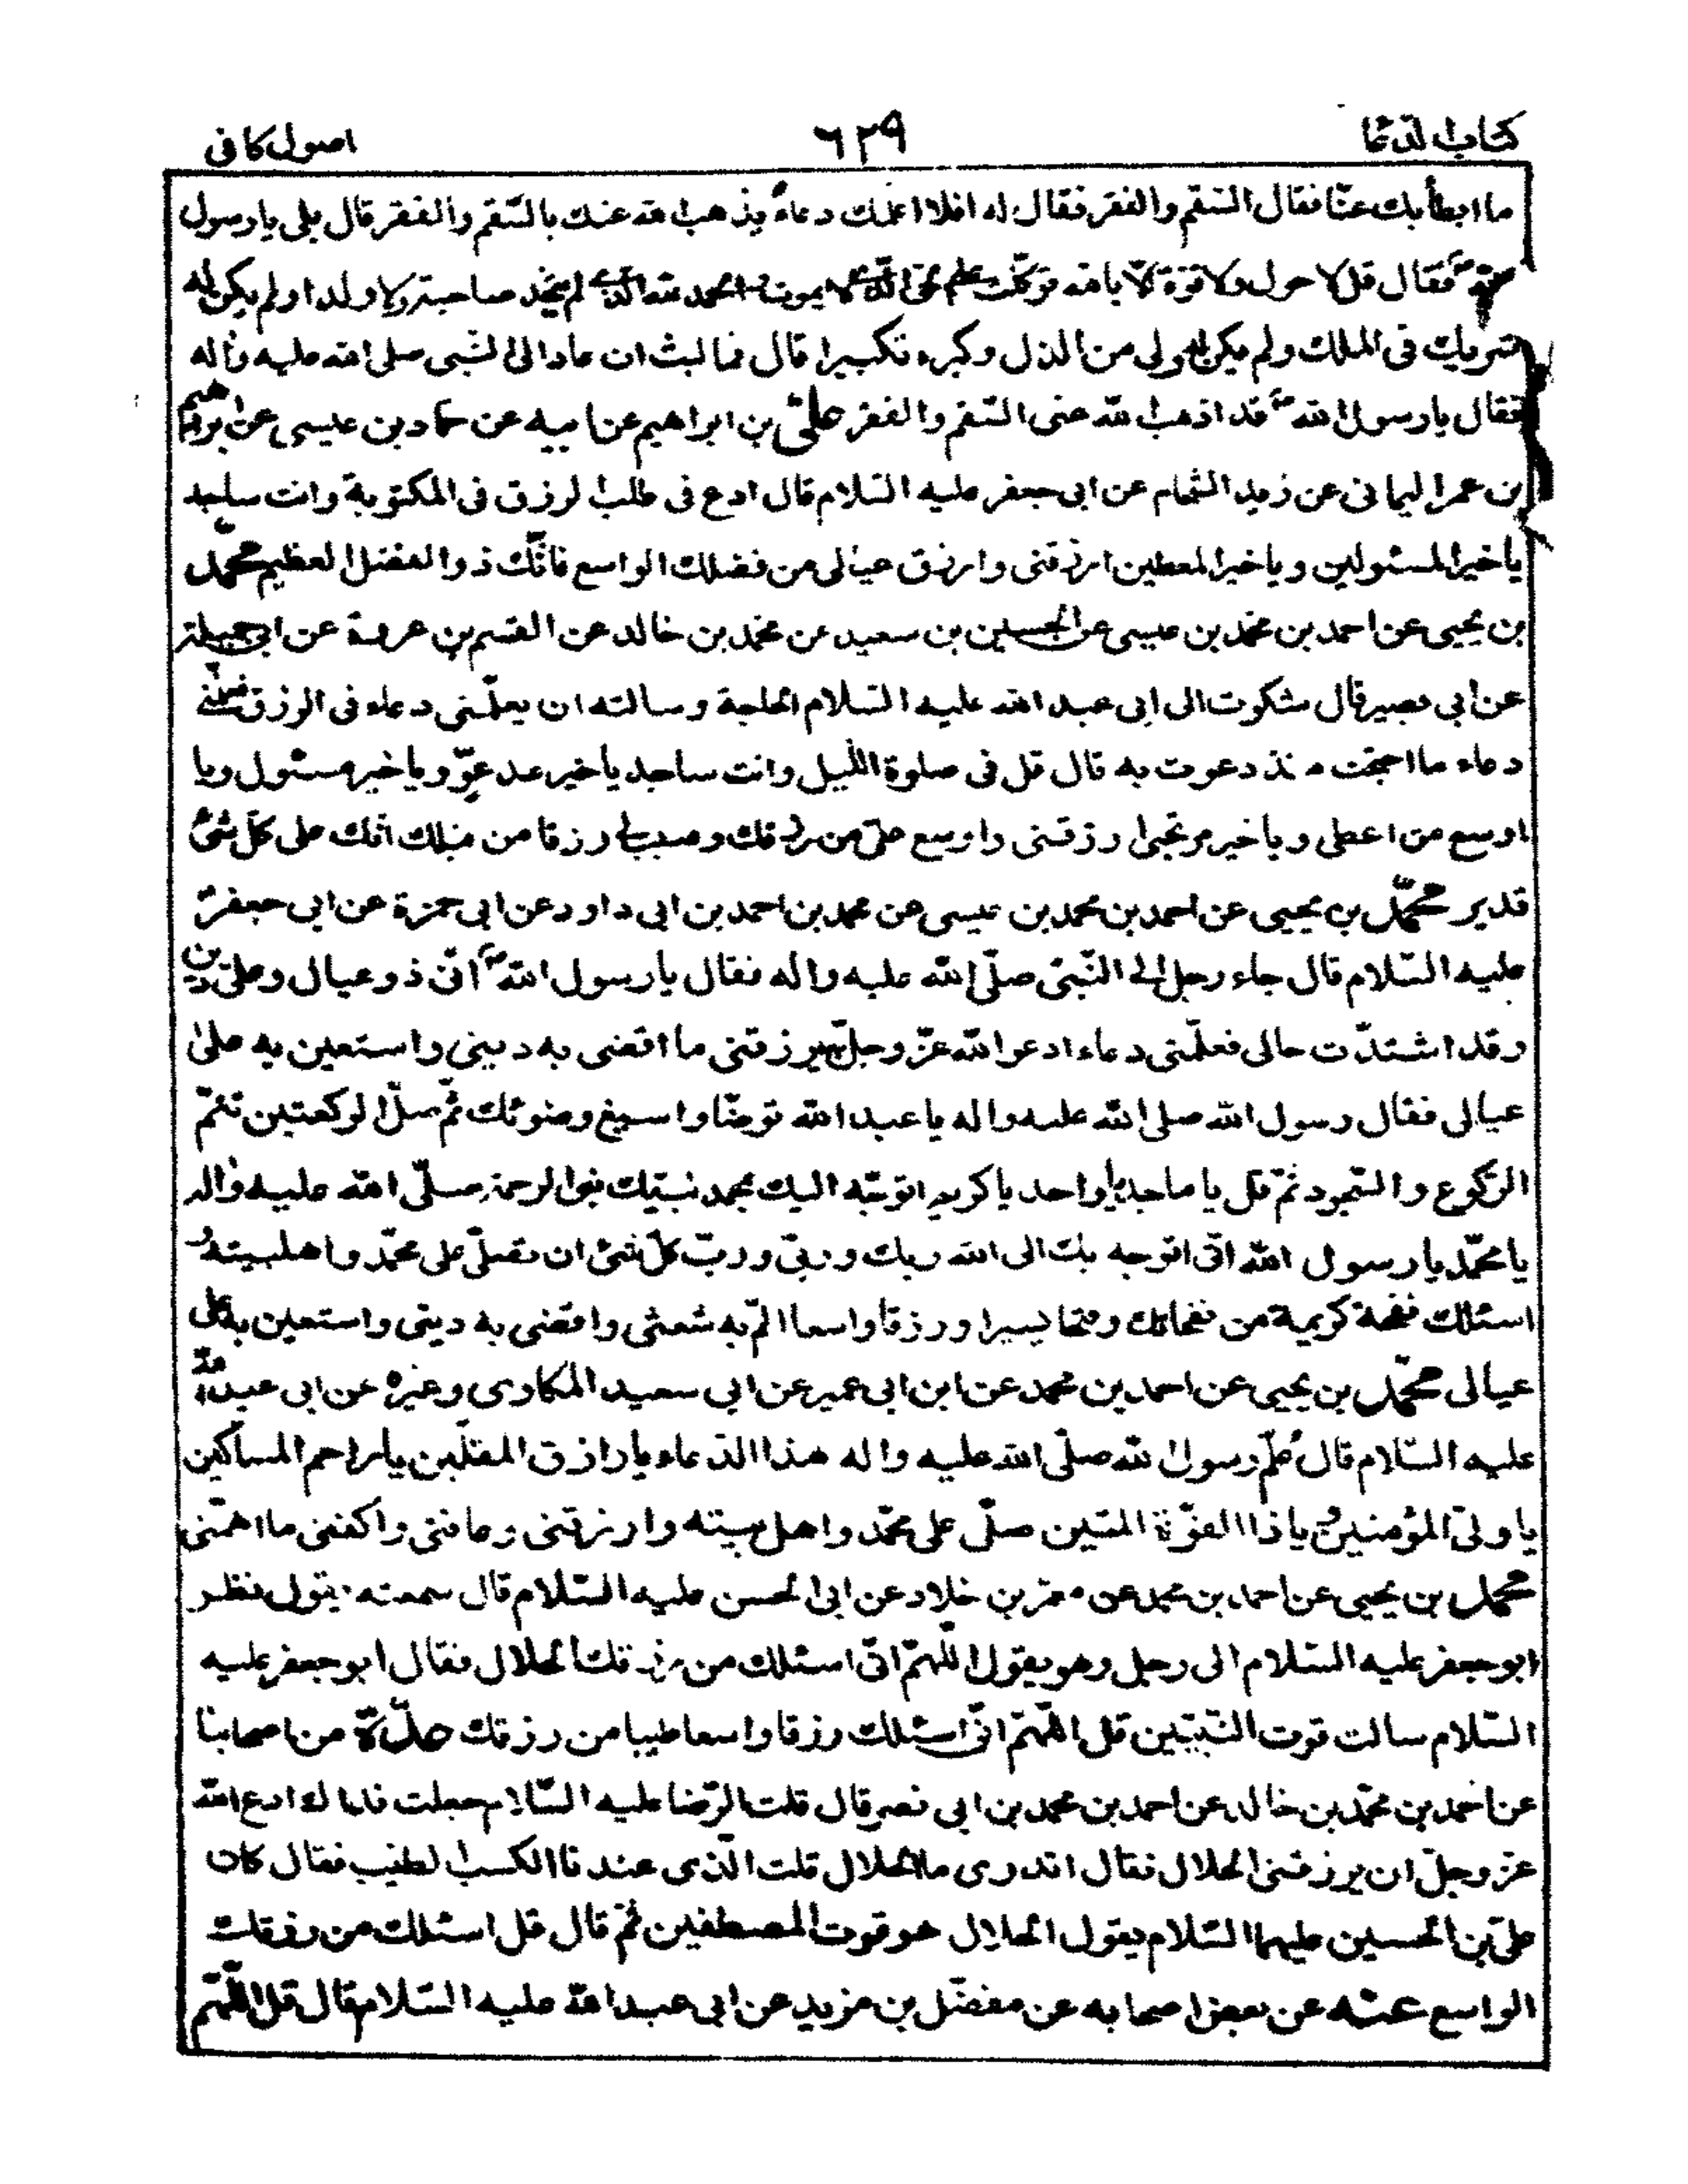 كتاب الدعا ٦٢٩ اصول كافى
ما ابطأ بك عنّا فقال السّقم والفقر فقال له افلا اعلمك دعاءً يذهب الله عنك بالسّقم والفقر قال بلى يا رسول
الله ص فقال قل لا حول ولا قوّة الّا بالله توكّلت على الحىّ الّذى لا يموت والحمد لله الّذى لم يتّخذ صاحبة ولا ولدا ولم يكن له
شريك فى الملك ولم يكن له ولى من الذل وكبره تكبيرا قال فما لبث ان عاد الى النّبى صلى الله عليه واله
فقال يا رسول الله ص قد اذهب الله عنى السّقم والفقر علىّ بن ابراهيم عن ابيه عن حماد بن عيسى عن ابراهيم
بن عمر اليمانى عن زيد الشّحام عن ابى جعفر عليه السّلام قال ادع فى طلب الرزق فى المكتوبة وانت ساجد
يا خير المسئولين ويا خير المعطين ارزقنى وارزق عيالى من فضلك الواسع فانّك ذو الفضل العظيم محمّد
بن يحيى عن احمد بن محمّد بن عيسى عن الحسين بن سعيد عن محمّد بن خالد عن القسم بن عروة عن ابى جميلة
عن ابى بصير قال شكوت الى ابى عبد الله عليه السّلام الحاجة وسالته ان يعلّمنى دعاء فى الرزق فعلّمنى
دعاء ما احتجت منذ دعوت به قال قل فى صلوة اللّيل وانت ساجد يا خير مدعوّ ويا خير مسئول ويا
اوسع من اعطى ويا خير مرتجى ارزقنى واوسع علىّ من رزقك وسبب لى رزقا من قبلك انّك على كلّ شىء
قدير محمّد بن يحيى عن احمد بن محمد بن عيسى عن محمد بن احمد بن ابى داود عن ابى حمزة عن ابى جعفر
عليه السّلام قال جاء رجل الى النّبىّ صلّى الله عليه واله فقال يا رسول الله ص انّى ذو عيال وعلىّ دين
وقد اشتدّت حالى فعلّمنى دعاء ادعو الله عزّ وجلّ به يرزقنى ما اقضى به دينى واستعين به على
عيالى فقال رسول الله صلى الله عليه واله يا عبد الله توضّا واسبغ وضوئك ثمّ صلّ لركعتين تتمّ
الرّكوع والسّجود ثمّ قل يا ماجد يا واحد يا كريم اتوجّه اليك بمحمد نبيّك نبىّ الرحمة صلّى الله عليه واله
يا محمّد يا رسول الله انّى اتوجه بك الى الله ربك وربّى وربّ كلّ شىء ان تصلّى على محمّد واهل بيته و
اسئلك نفحة كريمة من نفحاتك وفتحا يسيرا ورزقا واسعا المّ به شعثى واقضى به دينى واستعين به على
عيالى محمّد بن يحيى عن احمد بن محمد عن ابن ابى عمير عن ابى سعيد المكارى وغيره عن ابى عبد الله
عليه السّلام قال علّم رسول الله صلّى الله عليه واله هذا الدّعاء يا رازق المقلّين يا راحم المساكين
يا ولىّ المؤمنين يا ذا القوّة المتين صلّ على محمّد واهل بيته وارزقنى وعافنى واكفنى ما اهمّنى
محمّد بن يحيى عن احمد بن محمد عن معمّر بن خلاد عن ابى الحسن عليه السّلام قال سمعته يقول نظر
ابو جعفر عليه السّلام الى رجل وهو يقول اللّهمّ انّى اسئلك من رزقك الحلال فقال ابو جعفر عليه
السّلام سالت قوت النّبيّين قل اللّهمّ انّى اسئلك رزقا واسعا طيبا من رزقك عدّة من اصحابنا
عن احمد بن محمّد بن خالد عن احمد بن محمد بن ابى نصر قال قلت للرّضا عليه السّلام جعلت فداك ادع الله
عزّ وجلّ ان يرزقنى الحلال فقال اتدرى ما الحلال قلت الّذى عندنا الكسب الطيب فقال كان
علىّ بن الحسين عليهما السّلام يقول الحلال هو قوت المصطفين ثمّ قال قل اسئلك من رزقك
الواسع عنه عن بعض اصحابه عن مفضّل بن مزيد عن ابى عبد الله عليه السّلام قال قل اللّهمّ